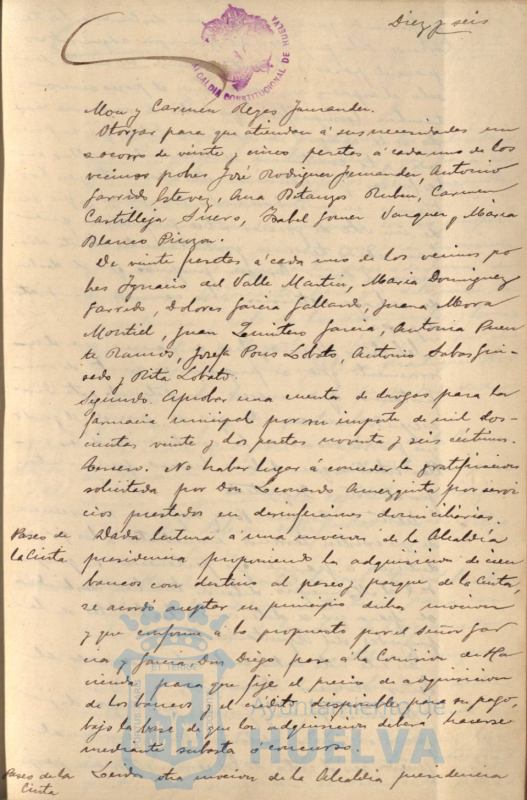 Diez y seis
ALCALDIA CONSTITUCIONAL DE HUELVA
Mon y Carmen Reyes Fernandez.
Otorgar para que atiendan á sus necesidades un
socorro de veinte y cinco pesetas á cada uno de los
vecinos pobres José Rodriguez Fernandez, Antonio
Garrido Estevez, Ana Betanzos Ruben, Carmen
Castilleja Suero, Isabel Gomez Vazquez y Maria
Blanco Pinzon.
De veinte pesetas a cada uno de los vecinos po
bres Ignacio del Valle Martin, Maria Dominguez
Garrido, Dolores Garcia Gallardo, Juana Mora
Montiel, Juan Quintero Garcia, Antonia Puen
te Ramos, Josefa Pons Lobato, Antonio Sabas Gui
sado y Rita Lobato.
Segundo. Aprobar una cuenta de drogas para la
farmacia municipal por su importe de mil dos-
cientas veinte y dos pesetas noventa y seis céntimos.
Tercero. No haber lugar á conceder la gratificacion
solicitada por Don Leonardo Amezquita por servi
cios prestados en desinfecciones domiciliarias.
Paseo de
la Cinta
Dada lectura á una mocion de la Alcaldia
presidencia proponiendo la adquisicion de cien
bancos con destino al paseo y parque de la Cinta,
se acordó aceptar en principio dicha mocion
y que conforme á lo propuesto por el señor Gar
cia y Garcia, Don Diego pase á la Comision de Ha
cienda para que fije el precio de adquisicion
de los bancos y el crédito disponible para su pago,
bajo la base de que la adquisicion deberá hacerse
mediante subasta ó concurso.
Paseo de la
Cinta
Leida otra mocion de la Alcaldia presidencia
Ayuntamiento de
HUELVA